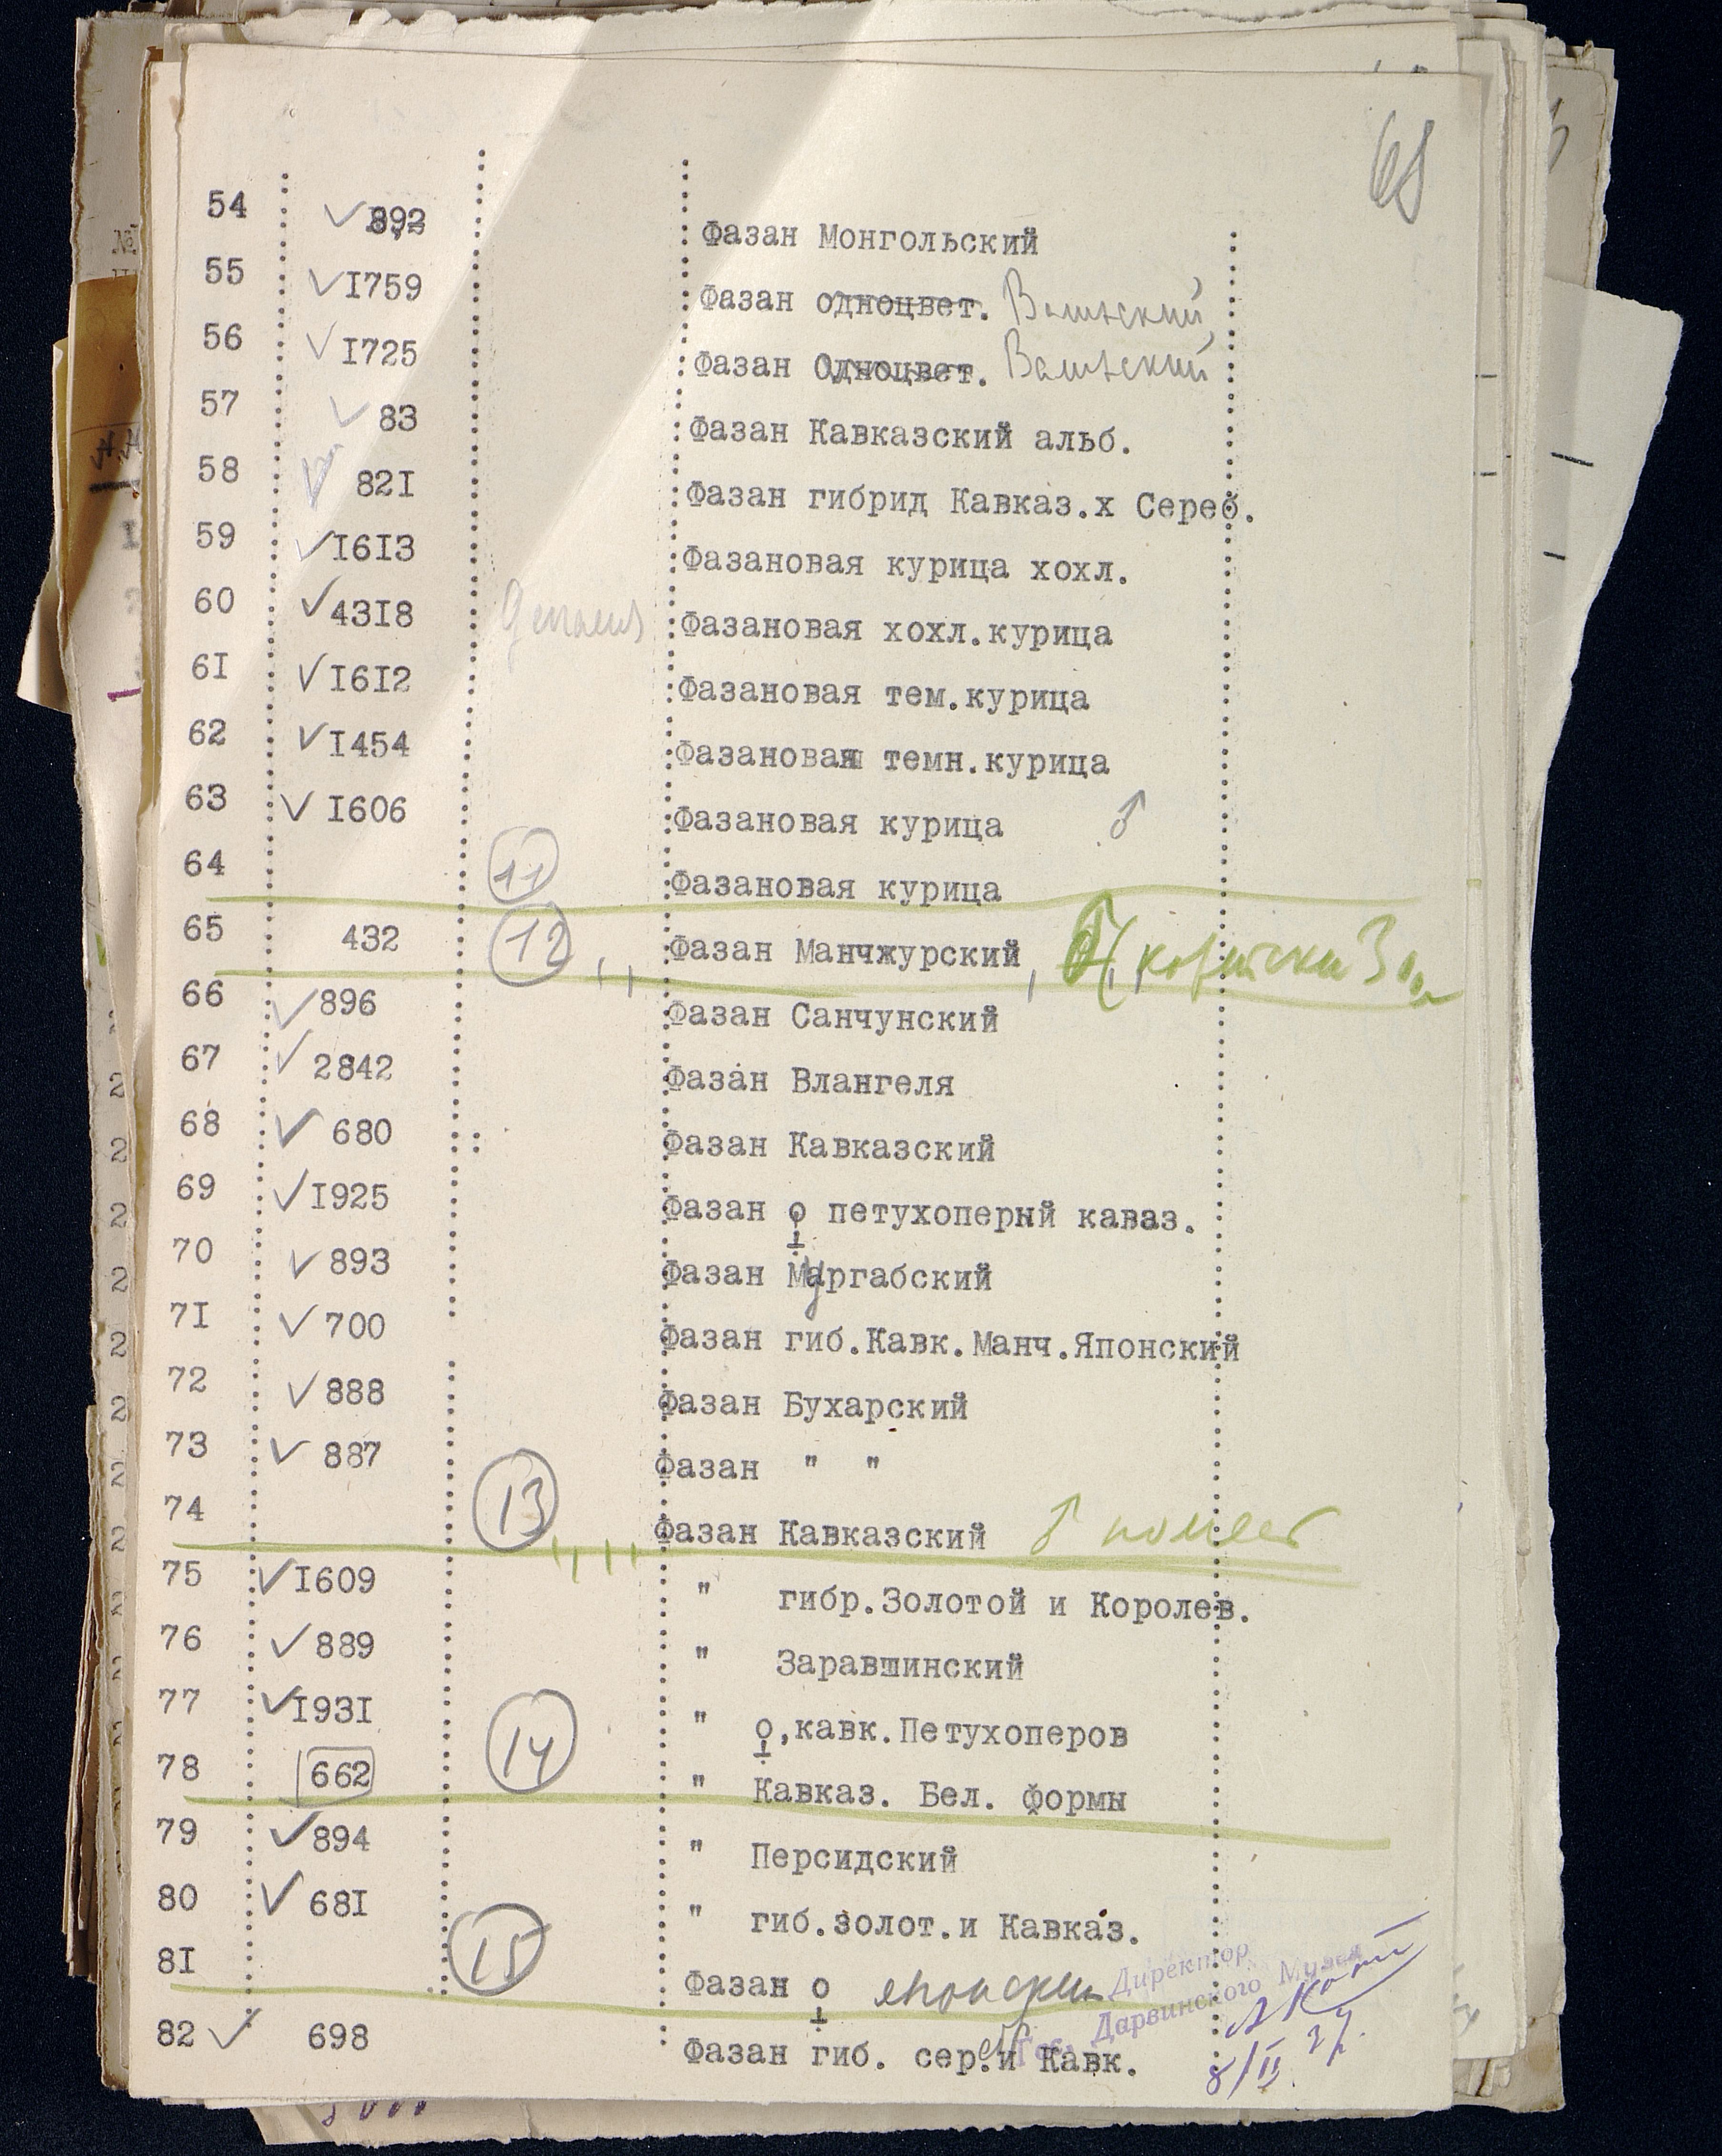 68
54 892 Фазан Монгольский
55 I759 Фазан одноцвет.
56 I725 Фазан Одноцвет.
57 83 Фазан Кавказский альб.
58 82I Фазан гибрид Кавказ.х Сереб.
59 I6I3 Фазановая курица хохл.
60 43I8 Фазановая хохл.курица
6I I6I2 Фазановая тем.курица
62 I454 Фазановая темн.курица
63 I606 Фазановая курица ♂
64 11 Фазановая курица
65 432 12 Фазан Манчжурский, ♂
66 896 Фазан Санчунский
67 2842 Фазан Влангеля
68 680 Фазан Кавказский
69 I925 Фазан ♀ петухопернй каваз.
70 893 Фазан Мургабский
7I 700 Фазан гиб.Кавк.Манч.Японский
72 888 Фазан Бухарский
73 887 Фазан " "
74 13 Фазан Кавказский ♂ помест
75 I609 " гибр.Золотой и Королев.
76 889 " Заравшинский
77 I93I " ♀,кавк.Петухоперов
78 662 14 " Кавказ. Бел. формы
79 894 " Персидский
80 68I " гиб.золот.и Кавказ.
8I 15 Фазан ♀
Директор
Гос. Дарвинского Музея
82 698 Фазан гиб. сер.и Кавк.
8/II 37.